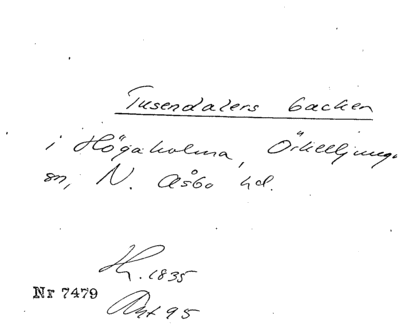 Tusendalers backen
i Högaholma, Örkelljunga
sn, N. Åsbo hd.
H. 1835
Nr 7479
Ant 95